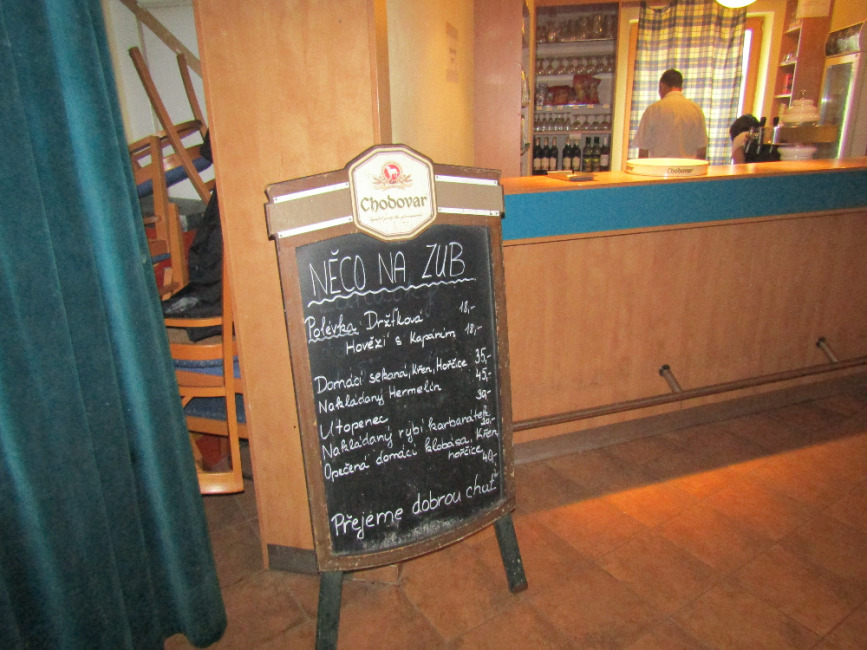 Chodovar
NĚCO NA ZUB
Polévka Držťková 18,-
Hovězí s Kapáním 18,-
Domácí sekaná, Křen, Hořčice 35,-
Nakládaný Hermelín 45,-
Utopenec 30,-
Nakládaný rybí karbanátek 20,-
Opečená domácí klobása, Křen
hořčice 40,-
Přejeme dobrou chuť
Chodovar